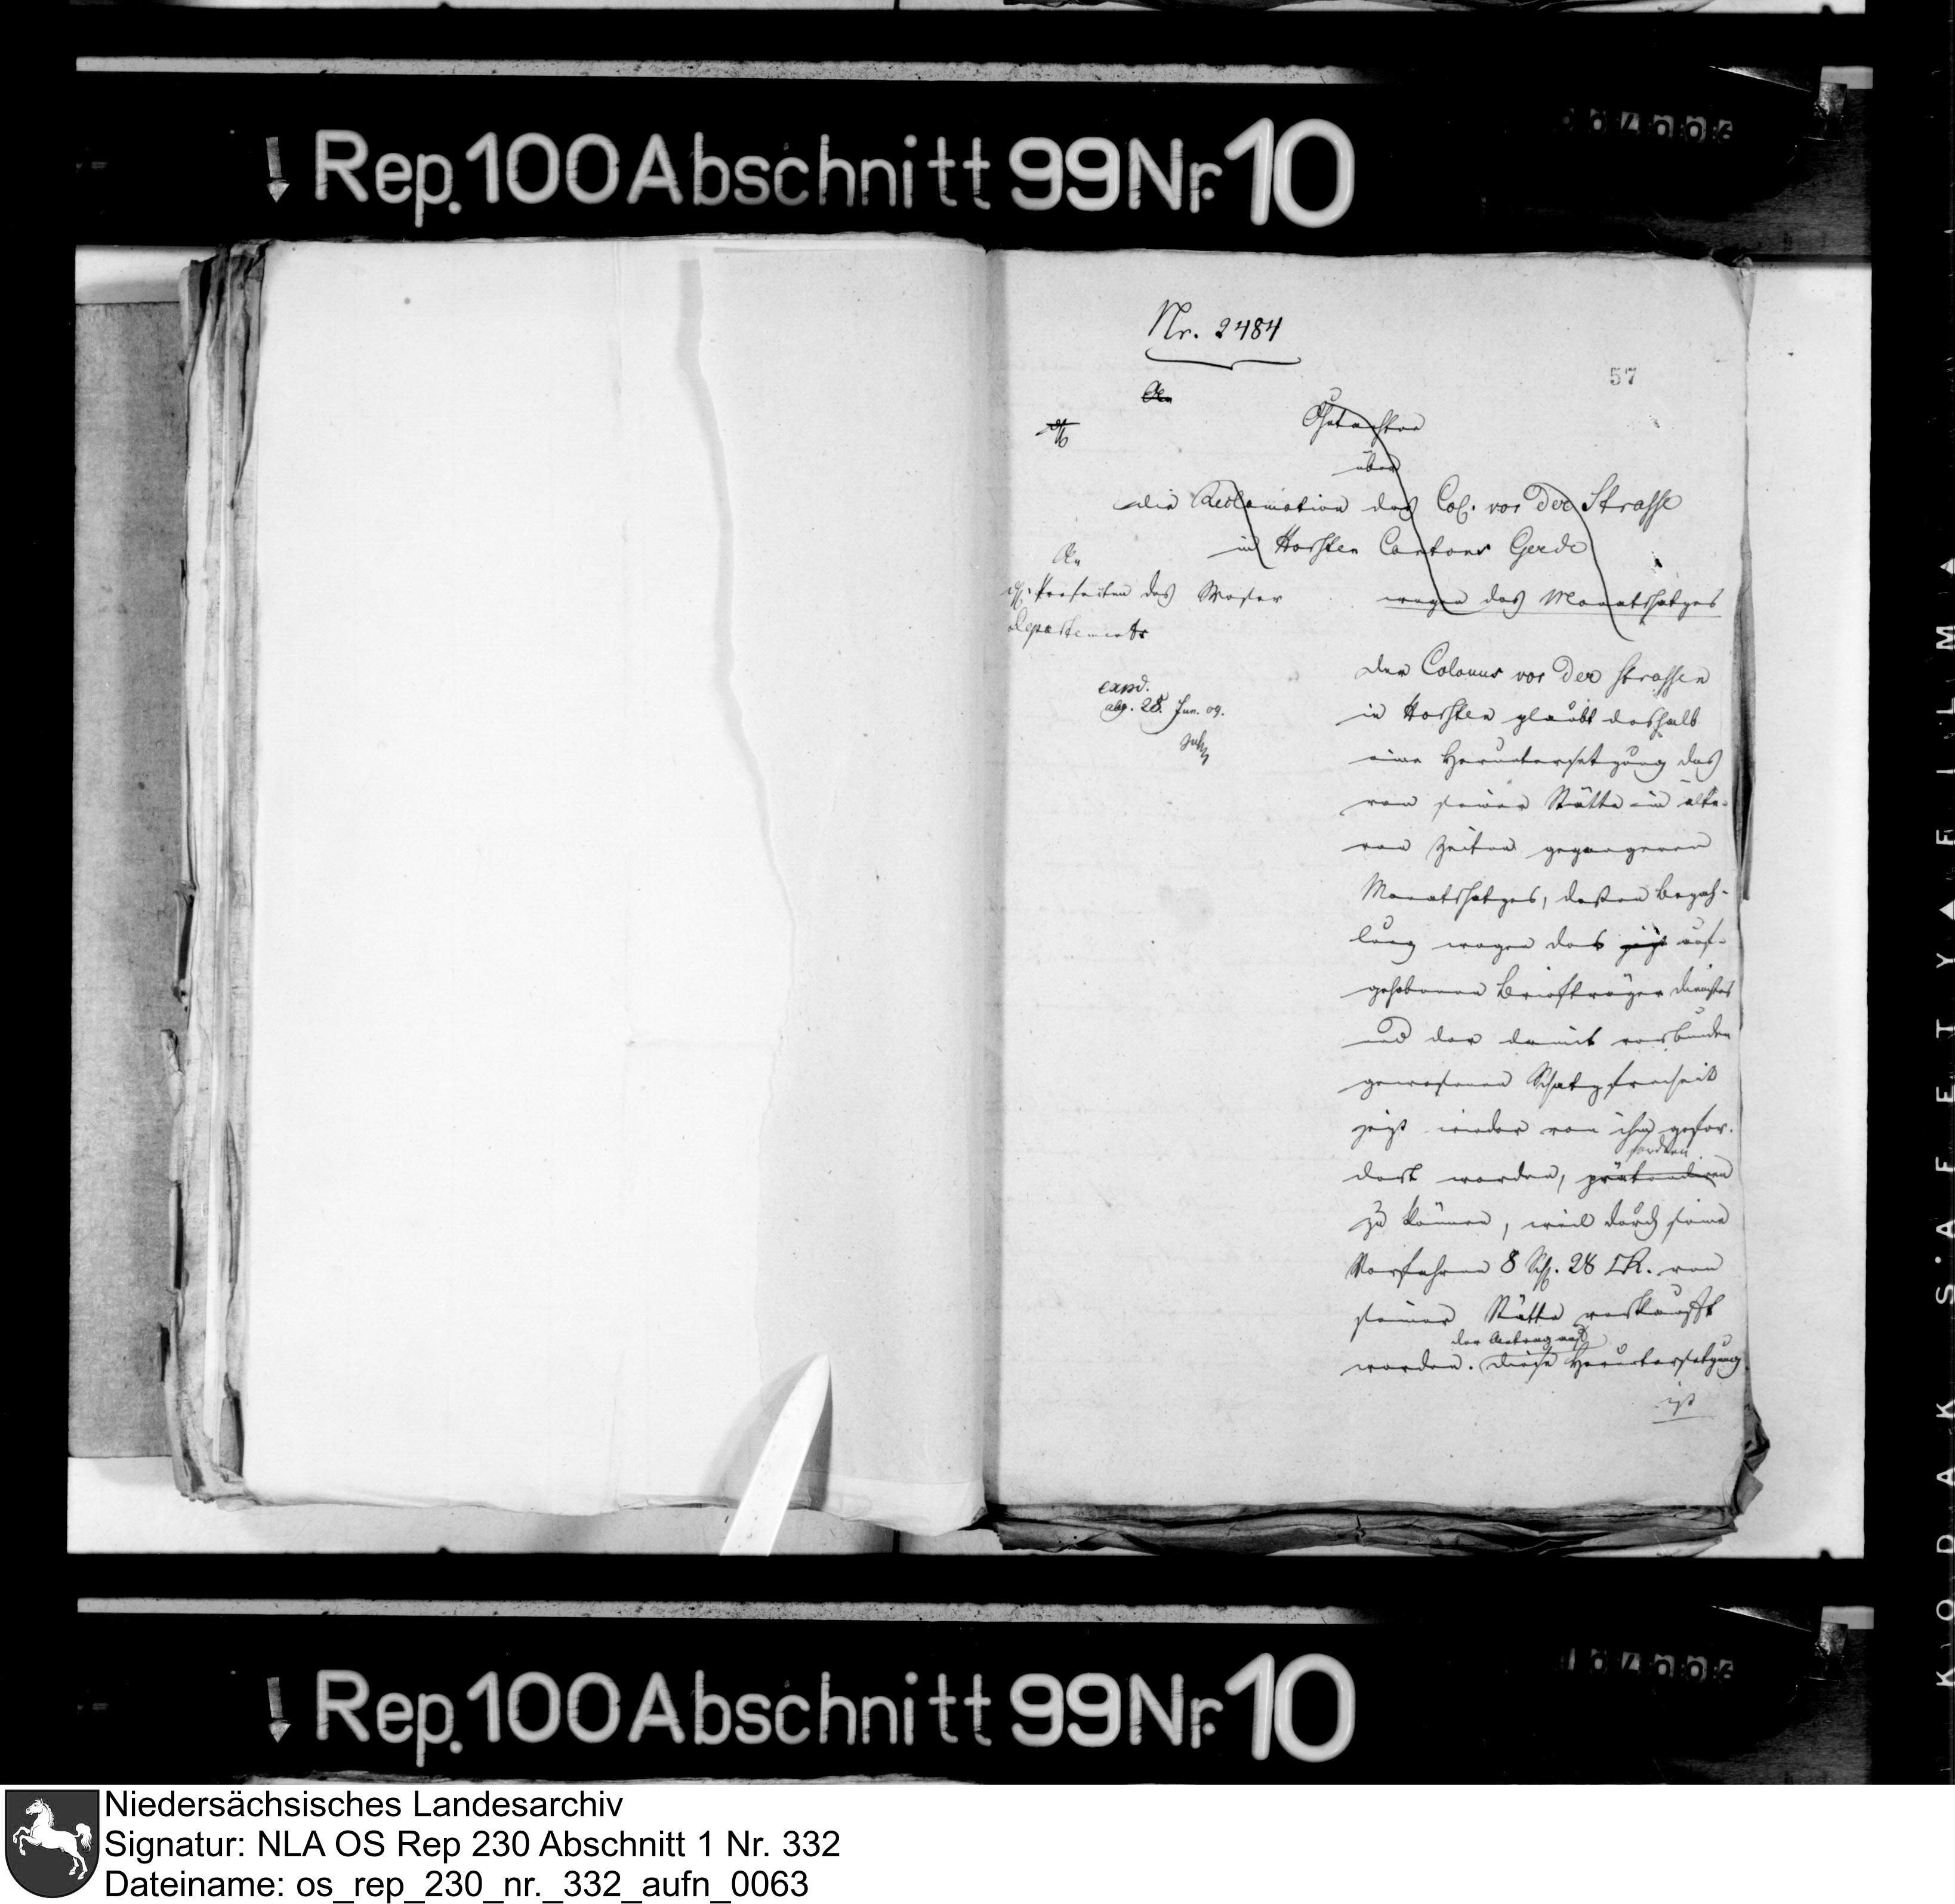 Rep. 100 Abschnitt 99 Nr. 10
Nr. 2484
57
An
Gutachten
über
die Reclamation des Col. vor der Strasse
in Horsten Cantons Gerde
wegen des Monatschatzes
An
H. Praefecten des Weser
Departements
exped.
abg. 28. Jun. 09.
Der Colonus vor der Strassen
in Horsten glaubt deshalb
eine Heruntersetzung des
von seiner Stätte in älte-
ren Zeiten gegangenen
Monatschatzes, deßen Bezah-
lung wegen des jetzt auf-
gehobenen Briefträger Dienstes
und der damit verbunden
gewesenen Schatzfreiheit
jezt wieder von ihm gefor-
fordern
dert worden, prätendiren
zu können, weil durch seine
Vorfahren 8 Sch. 28 R. von
seiner Stätte verkauft
der Antrag auf
worden. Diese Heruntersetzung
ist
KODAK SAFETY FILM
Rep. 100 Abschnitt 99 Nr. 10
Niedersächsisches Landesarchiv
Signatur: NLA OS Rep 230 Abschnitt 1 Nr. 332
Dateiname: os_rep_230_nr._332_aufn_0063